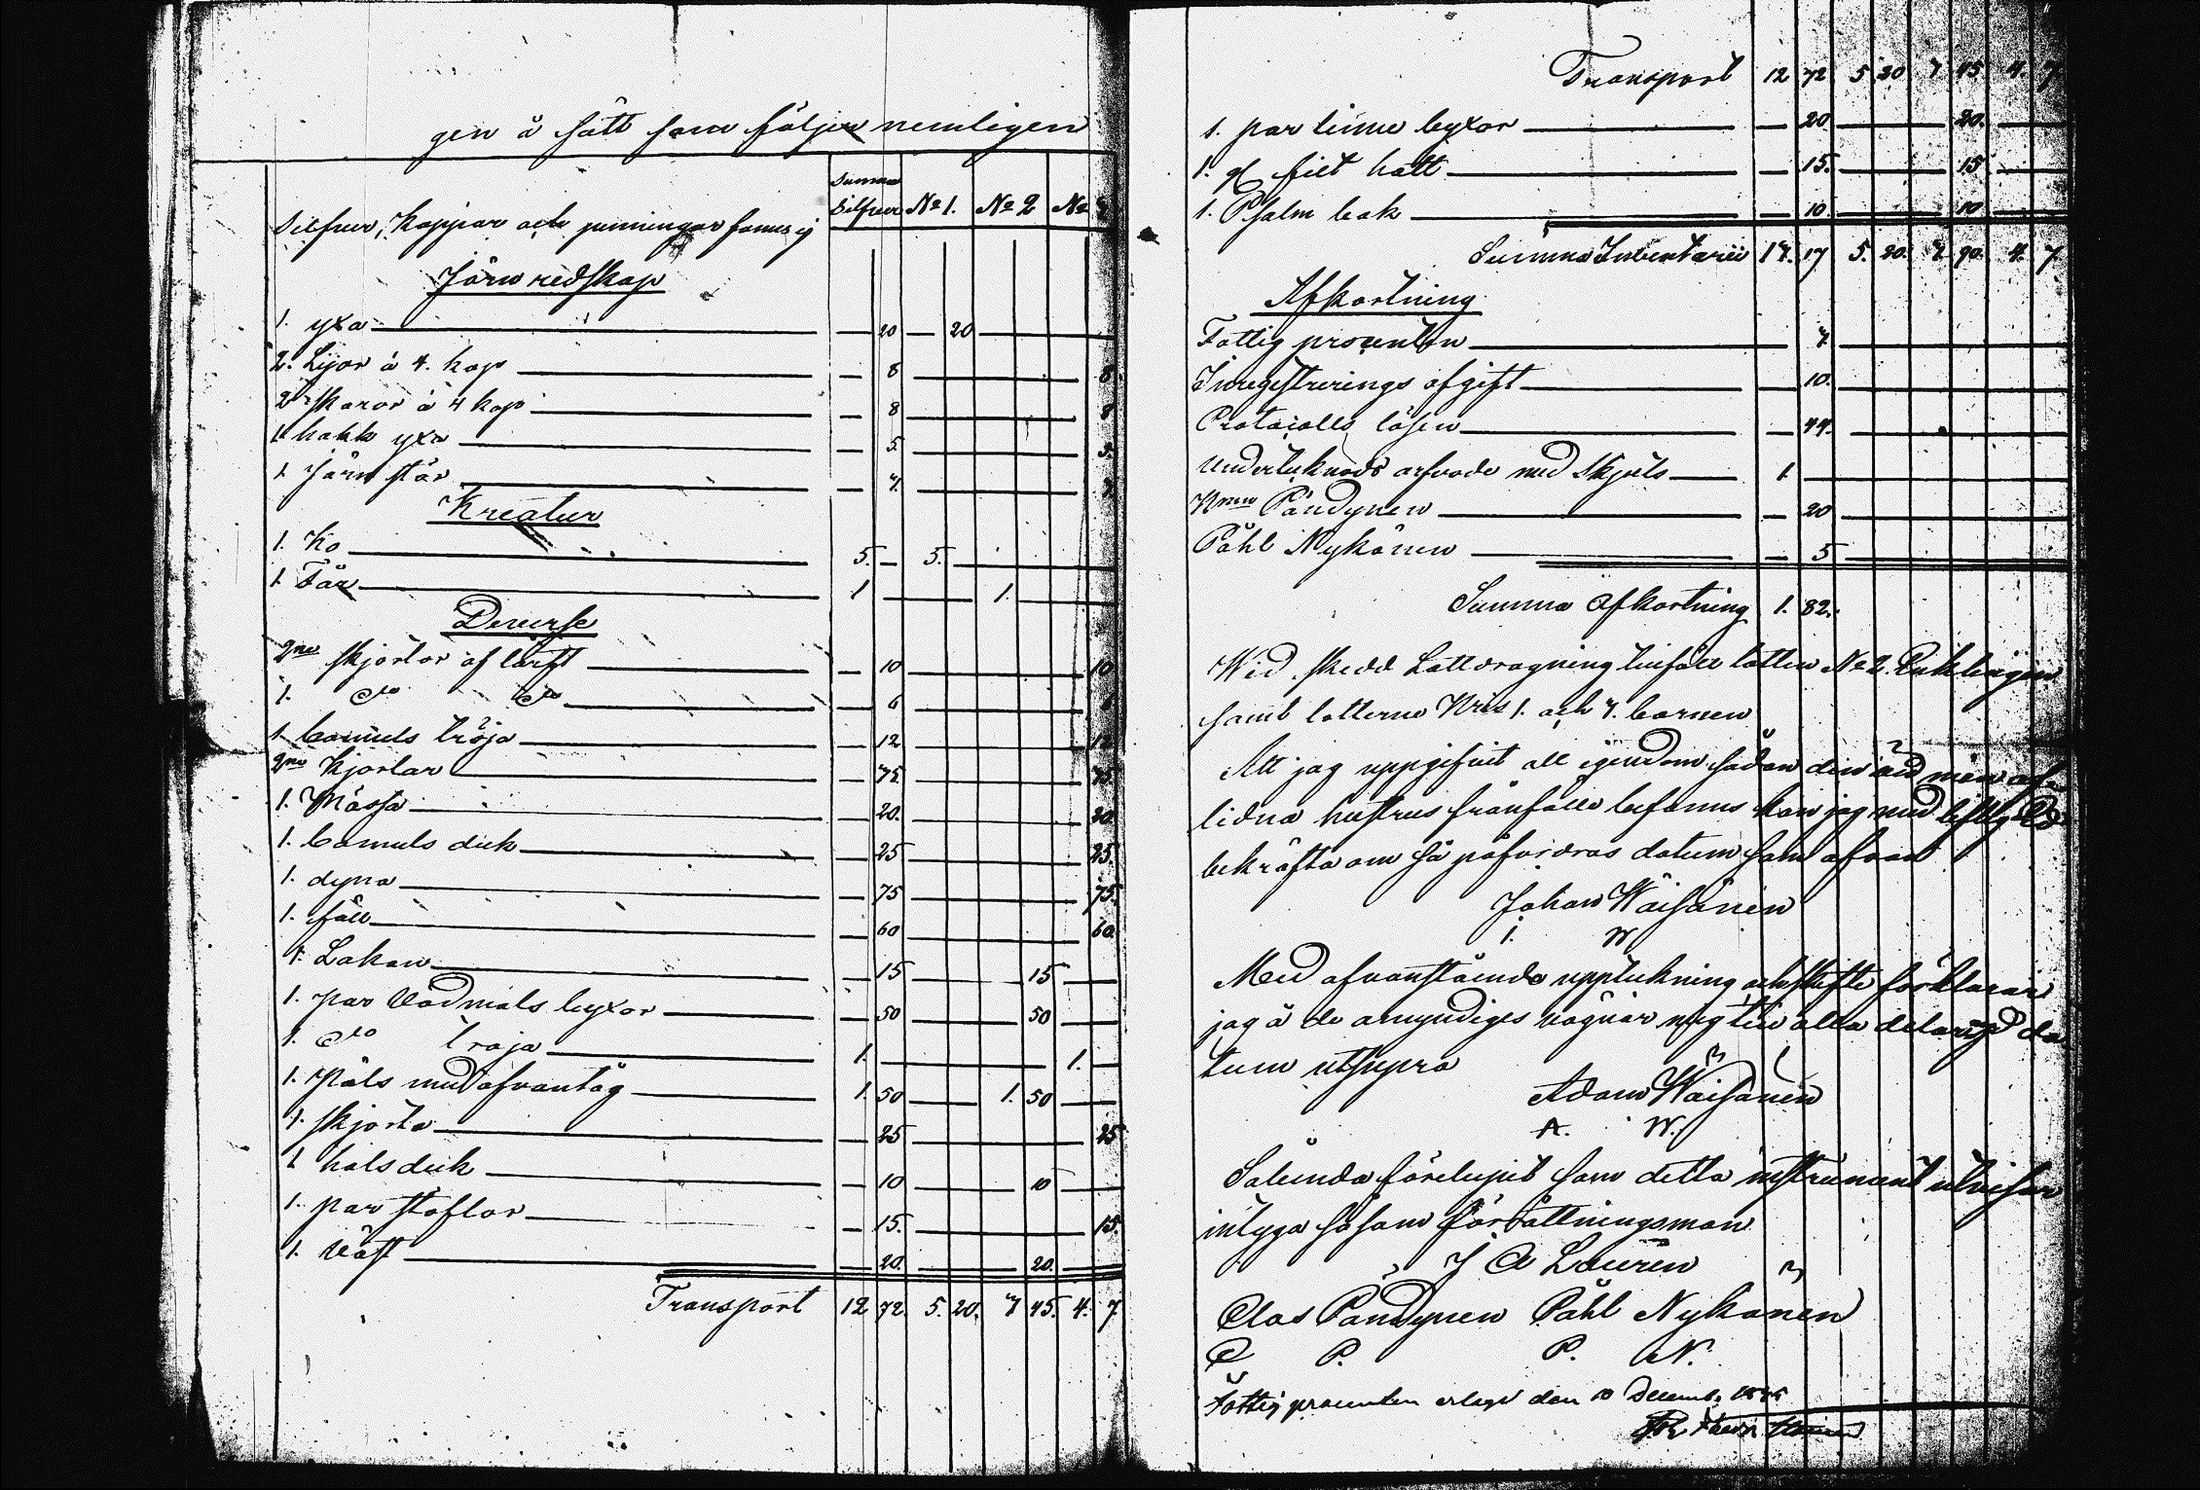 gen å sätt som följer nemligen
Summa
Silfver N:o 1. N:o 2 N:o 3
Silfver, Koppar och penningar fanns ej
Järnredskap
1. yxa — 20 — 20
2. Lijor à 4. kop — 8 8.
2 skäror à 4 kop — 8 8
1 hakk yxa — 5 5.
1. Järn stör — 7. 7
Kreatur
1. Ko 5. — 5.
1. Får 1 — 1.
Diverse
2ne skjortor af lärft — 10 10
1. Dto Dto — 6 6
1. bomuls tröja — 12 12
2ne Kjortlar — 75 75
1. Mössa — 20. 20.
1. bomuls duk — 25 25.
1. dyna — 75 75.
1. fäll — 60 60.
1. Lakan — 15 15
1. par Vadmals byxor — 50 50
1. Dto tröja 1. 1.
1. Päls med ofvantåg 1. 50 1. 50
1. skjorta — 25 25
1 halsduk — 10 10
1. par stöflor — 15. 15.
1. Väst — 20. 20.
Transport 12 72. 5. 20. 7 45. 4. 7.
Transport 12 72 5 20 7 45. 4. 7.
1. par linne byxor — 20 20.
1. gl filt hatt — 15. 15
1. Psalm bok — 10. 10
Summa Inventarii 17. 17 5. 20. 7. 90. 4. 7.
Afkortning
Fattig procenten — 7.
Inregistrerings afgift — 10.
Protocolls lösen — 44.
Undertecknads arfvode med Skjuts 1.
Nmn Pöndynen — 20
Påhl Nykänen — 5
Summa Afkortning 1. 82.
Wid skedd Lottdragning tillföll lotten N:o 2. Enklingen
samt lotterne N:ris 1. och 3. barnen
Att jag uppgifvit all egendom sådan den vid min af-
lidna hustrus frånfälle befanns kan jag med liflig Ed
bekräfta om så påfordras datum som ofvan
Johan Wäisänen
J. W.
Med ofvanstående uppteckning och skifte förklarar
jag å de omyndiges vägnar mig till alla delar nöjd da-
tum utsupra
Adam Wäisänen
A. W.
Sålunda förelupit som detta instrument utvisar
intyga såsom förrättningsman
J A Lauren
Clas Pöndynen Påhl Nykänen
C P. P. N.
Fattig procenten erlagd den 10 Decemb.